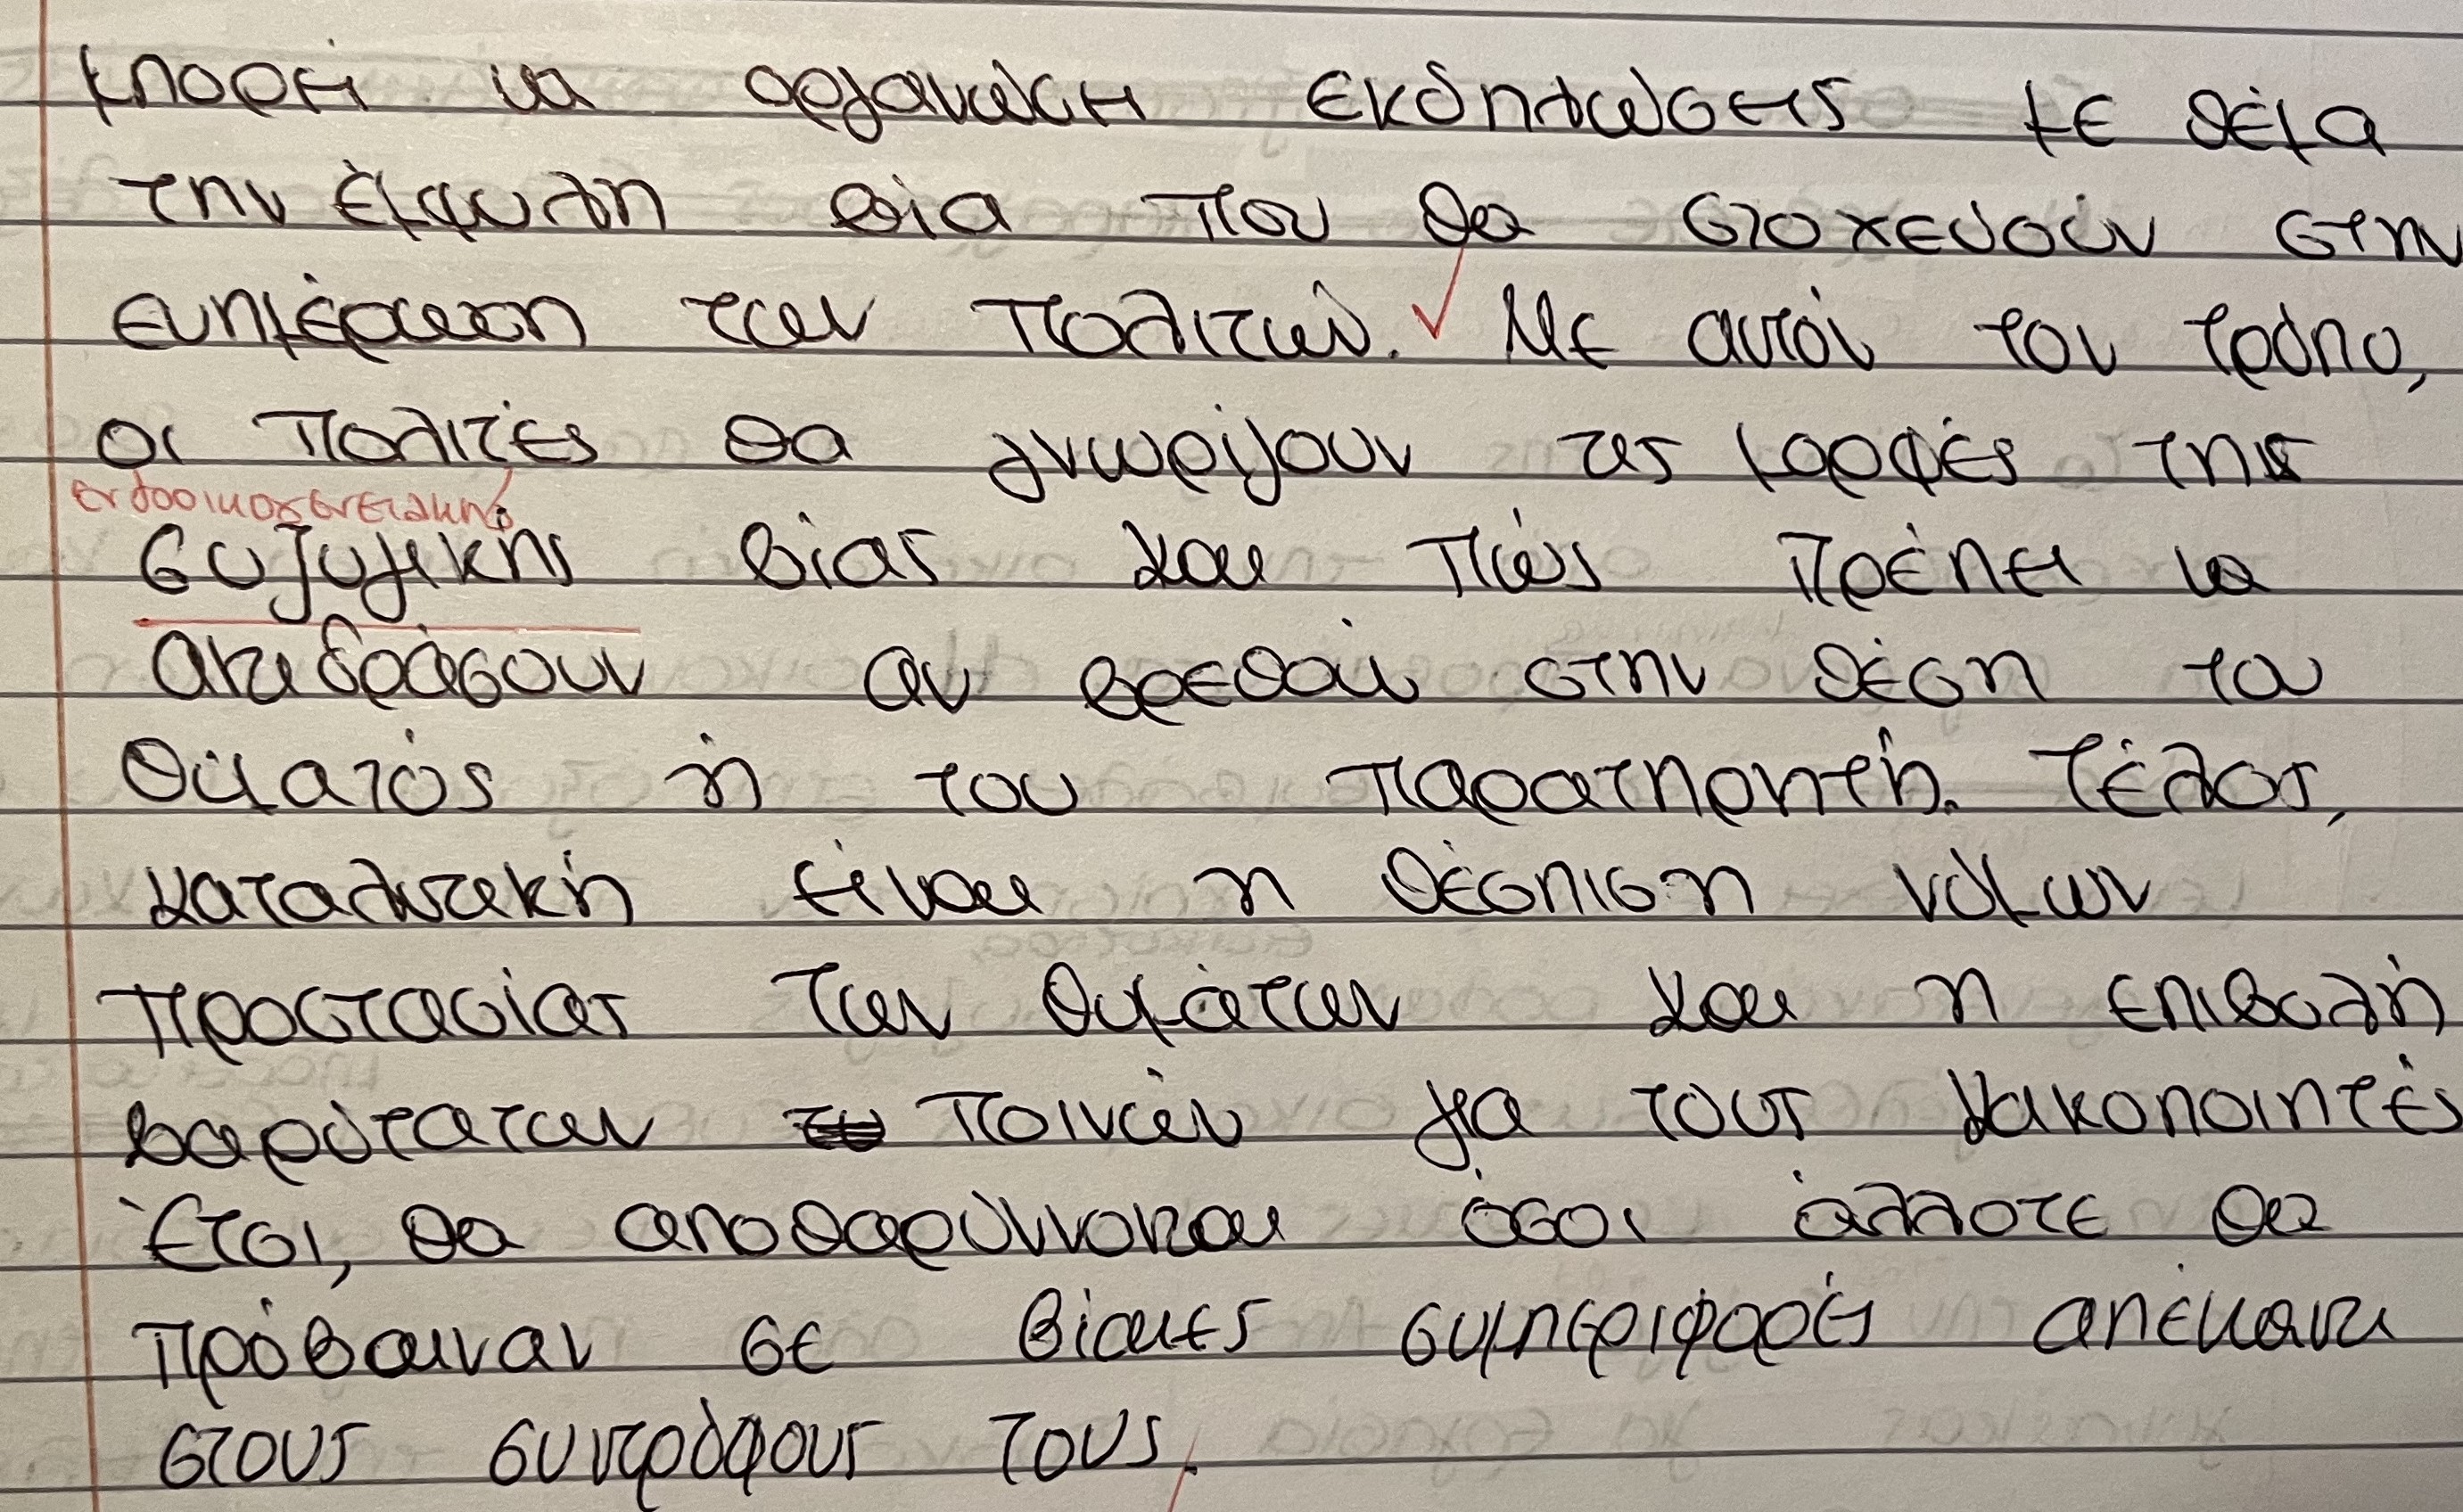 μπορεί να οργανώσει εκδηλώσεις με θέμα
την έμφυλη βία που θα στοχεύουν στην
ενημέρωση των πολιτών. Με αυτόν τον τρόπο,
οι πολίτες θα γνωρίζουν τις μορφές της
ενδοοικογενειακής
συζυγικής βίας και πώς πρέπει να
αντιδράσουν αν βρεθούν στην θέση του
θύματός ή του παρατηρητή. Τέλος,
καταλυτική είναι η θέσπιση νόμων
προστασίας των θυμάτων και η επιβολή
βαρύτατων ποινών για τους κακοποιητές
Έτσι, θα αποθαρύννονται όσοι άλλοτε θα
πρόβαιναν σε βίαιες συμπεριφορές απέναντι
στους συντρόφους τους.